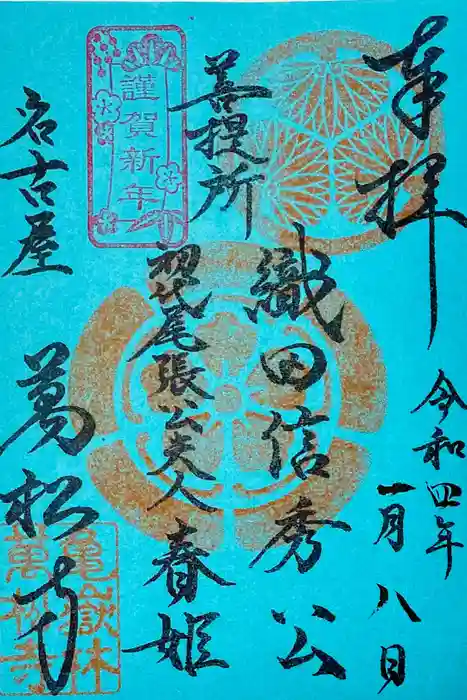 奉拝
令和四年
一月八日
織田信秀公
菩提所
初代尾張公夫人 春姫
謹賀新年
名古屋
萬松寺
亀嶽林
萬松寺